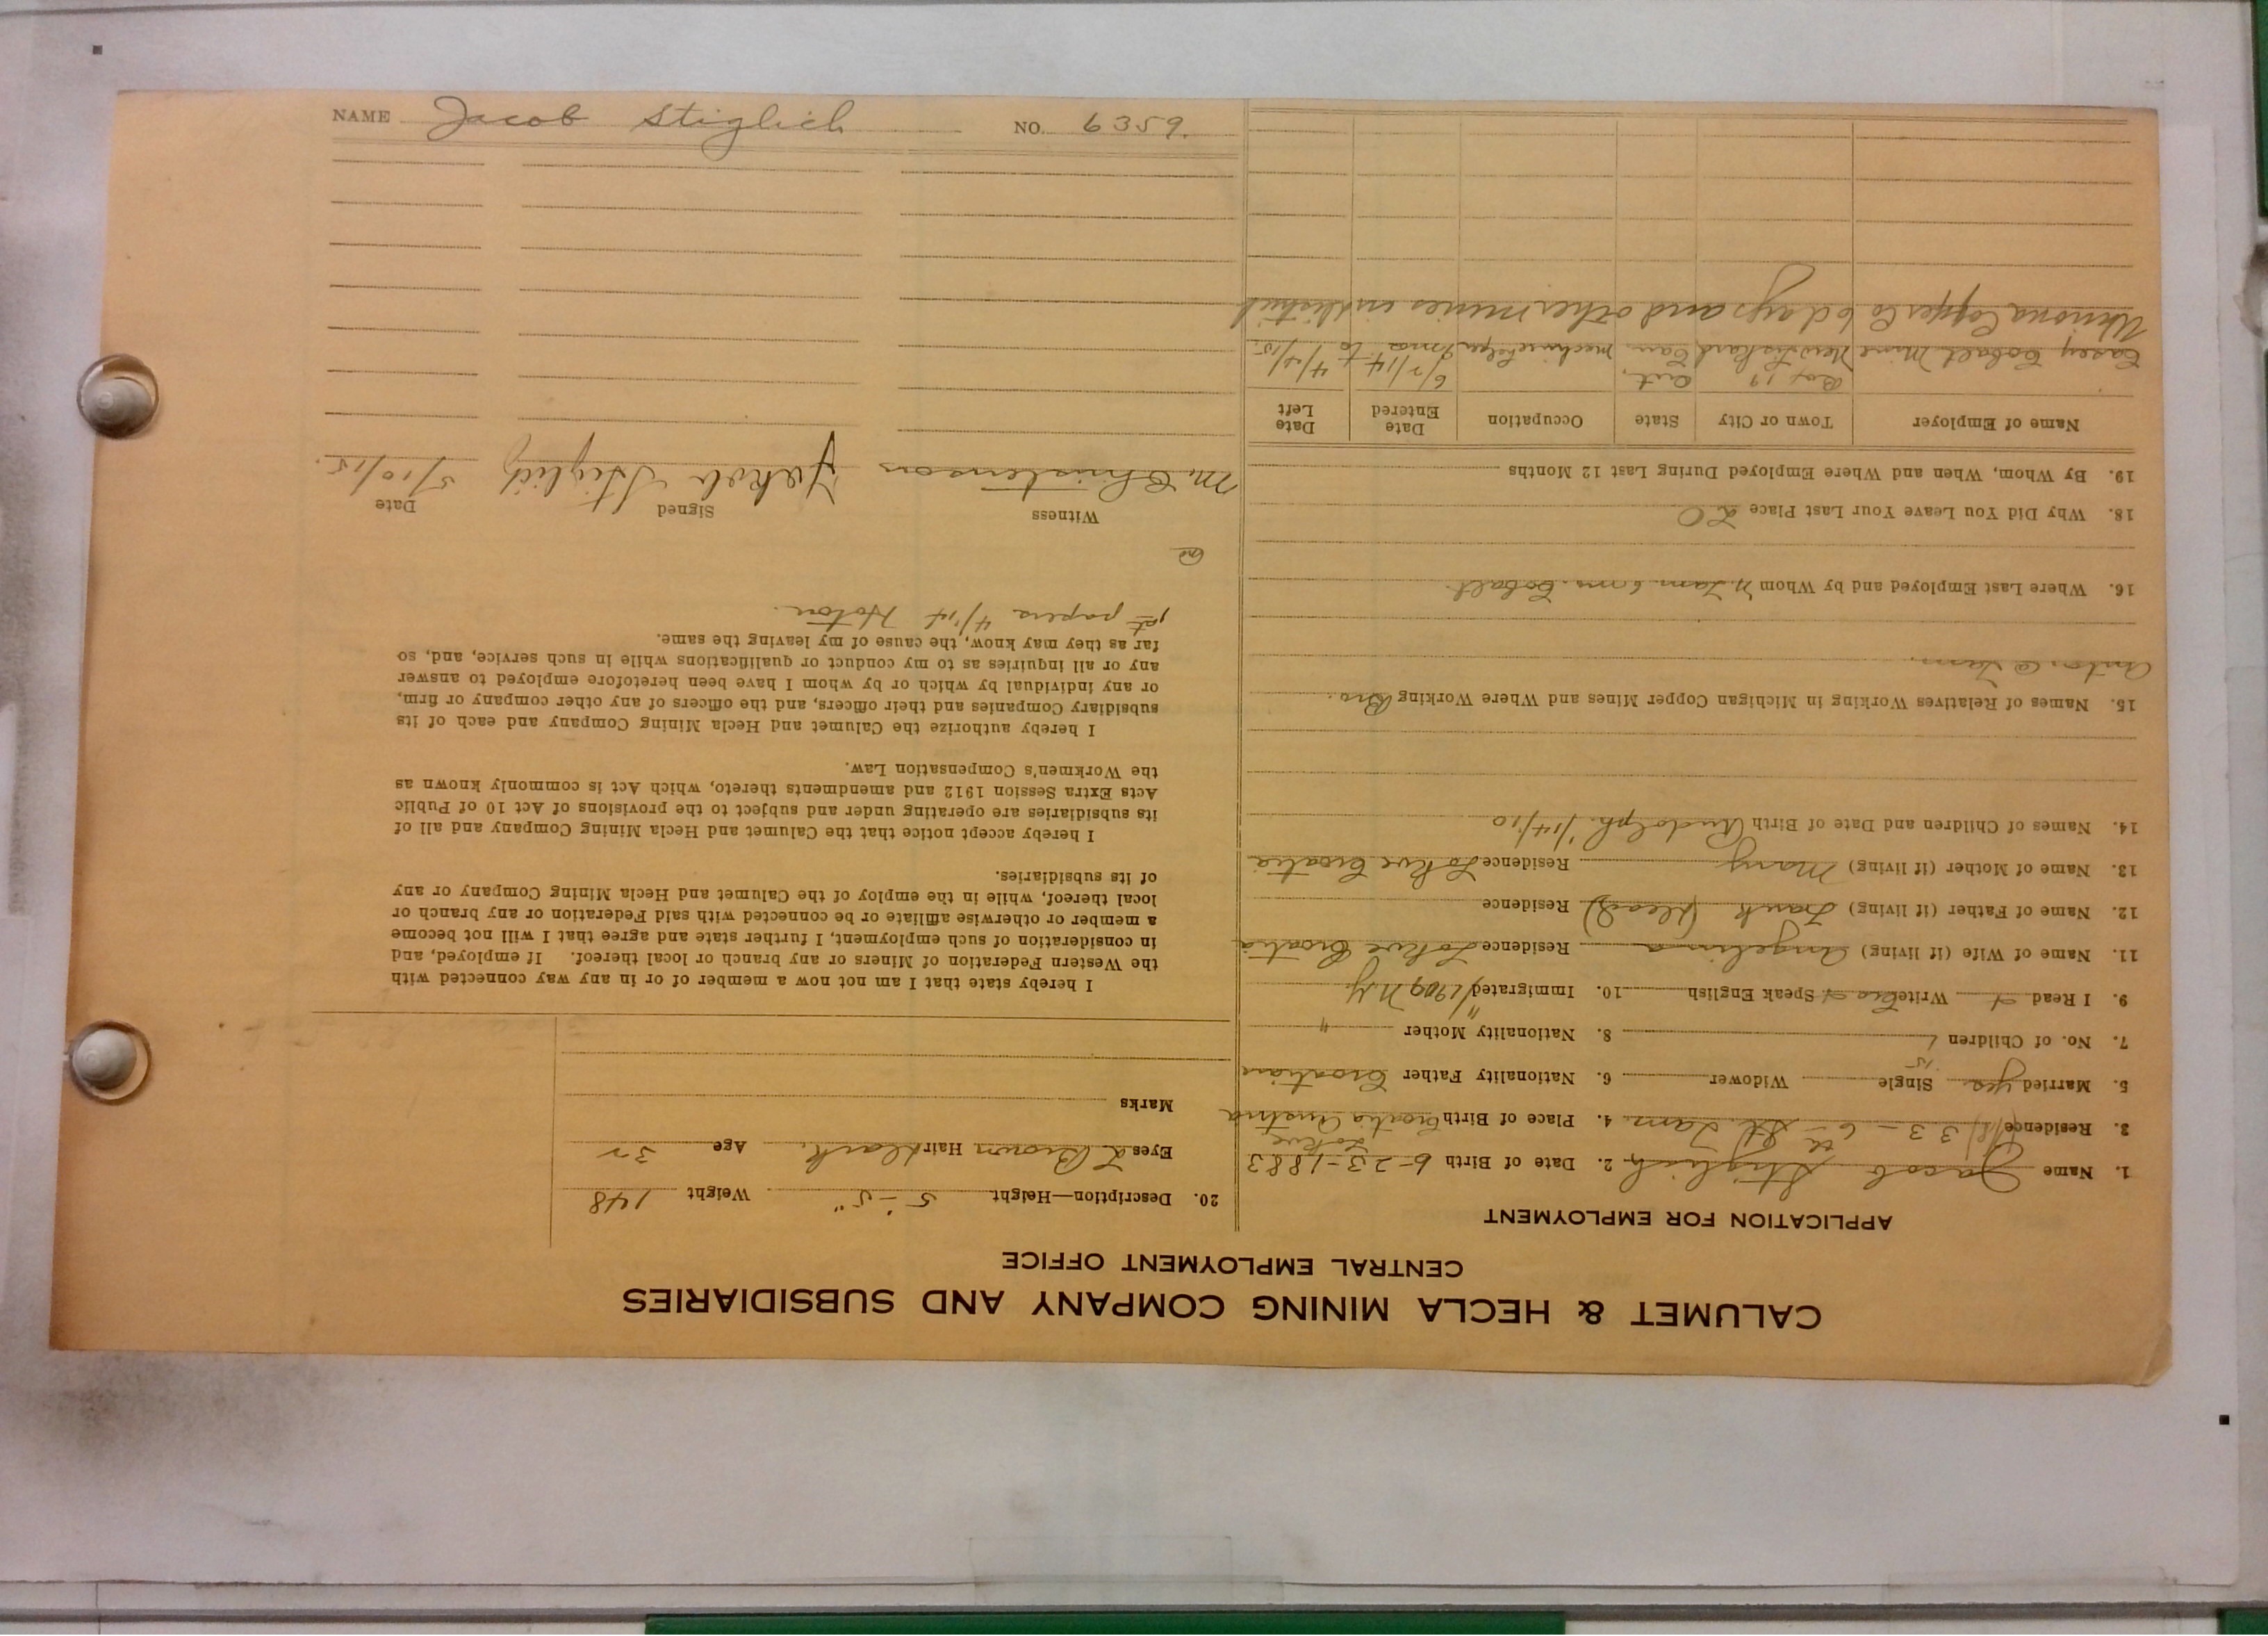 NAME Jacob Stiglich NO. 6359.
CALUMET & HECLA MINING COMPANY AND SUBSIDIARIES
CENTRAL EMPLOYMENT OFFICE
APPLICATION FOR EMPLOYMENT
1. Name Jacob Stiglich 2. Date of Birth 6-23-1883
Lokve
3. Residence 33 - 6th St. Laur. 4. Place of Birth Croatia Austria
5. Married yes Single Widower 6. Nationality Father Croatian
15
7. No. of Children 1 8. Nationality Mother "
9. I Read Write Speak English 10. Immigrated 1909 N.Y
11. Name of Wife (if living) Angelina Residence Lokve Croatia
12. Name of Father (if living) Frank (dead) Residence
13. Name of Mother (if living) Mary Residence Lokve Croatia
14. Names of Children and Date of Birth Rudolph. 1/14/10
15. Names of Relatives Working in Michigan Copper Mines and Where Working Bro.
Anton @ Laur.
16. Where Last Employed and by Whom Cobalt.
18. Why Did You Leave Your Last Place LO
19. By Whom, When and Where Employed During Last 12 Months
Name of Employer Town or City State Occupation Date Entered Date Left
Ont. 6/2/14 4/4/15.
Casey Cobalt Mine New Liskard Can. machine helper
Winona Copper Co 6 days and other mines in district
20. Description—Height 5'-5" Weight 148
Eyes L Brown Hair dark. Age 32
Marks
I hereby state that I am not now a member of or in any way connected with
the Western Federation of Miners or any branch or local thereof. If employed, and
in consideration of such employment, I further state and agree that I will not become
a member or otherwise affiliate or be connected with said Federation or any branch or
local thereof, while in the employ of the Calumet and Hecla Mining Company or any
of its subsidiaries.
I hereby accept notice that the Calumet and Hecla Mining Company and all of
its subsidiaries are operating under and subject to the provisions of Act 10 of Public
Acts Extra Session 1912 and amendments thereto, which Act is commonly known as
the Workmen's Compensation Law.
I hereby authorize the Calumet and Hecla Mining Company and each of its
subsidiary Companies and their officers, and the officers of any other company or firm,
or any individual by which or by whom I have been heretofore employed to answer
any or all inquiries as to my conduct or qualifications while in such service, and, so
far as they may know, the cause of my leaving the same.
papers 4/14 Hoton.
Witness Signed Date
M. Christenson Jakob Stiglich 5/10/15.